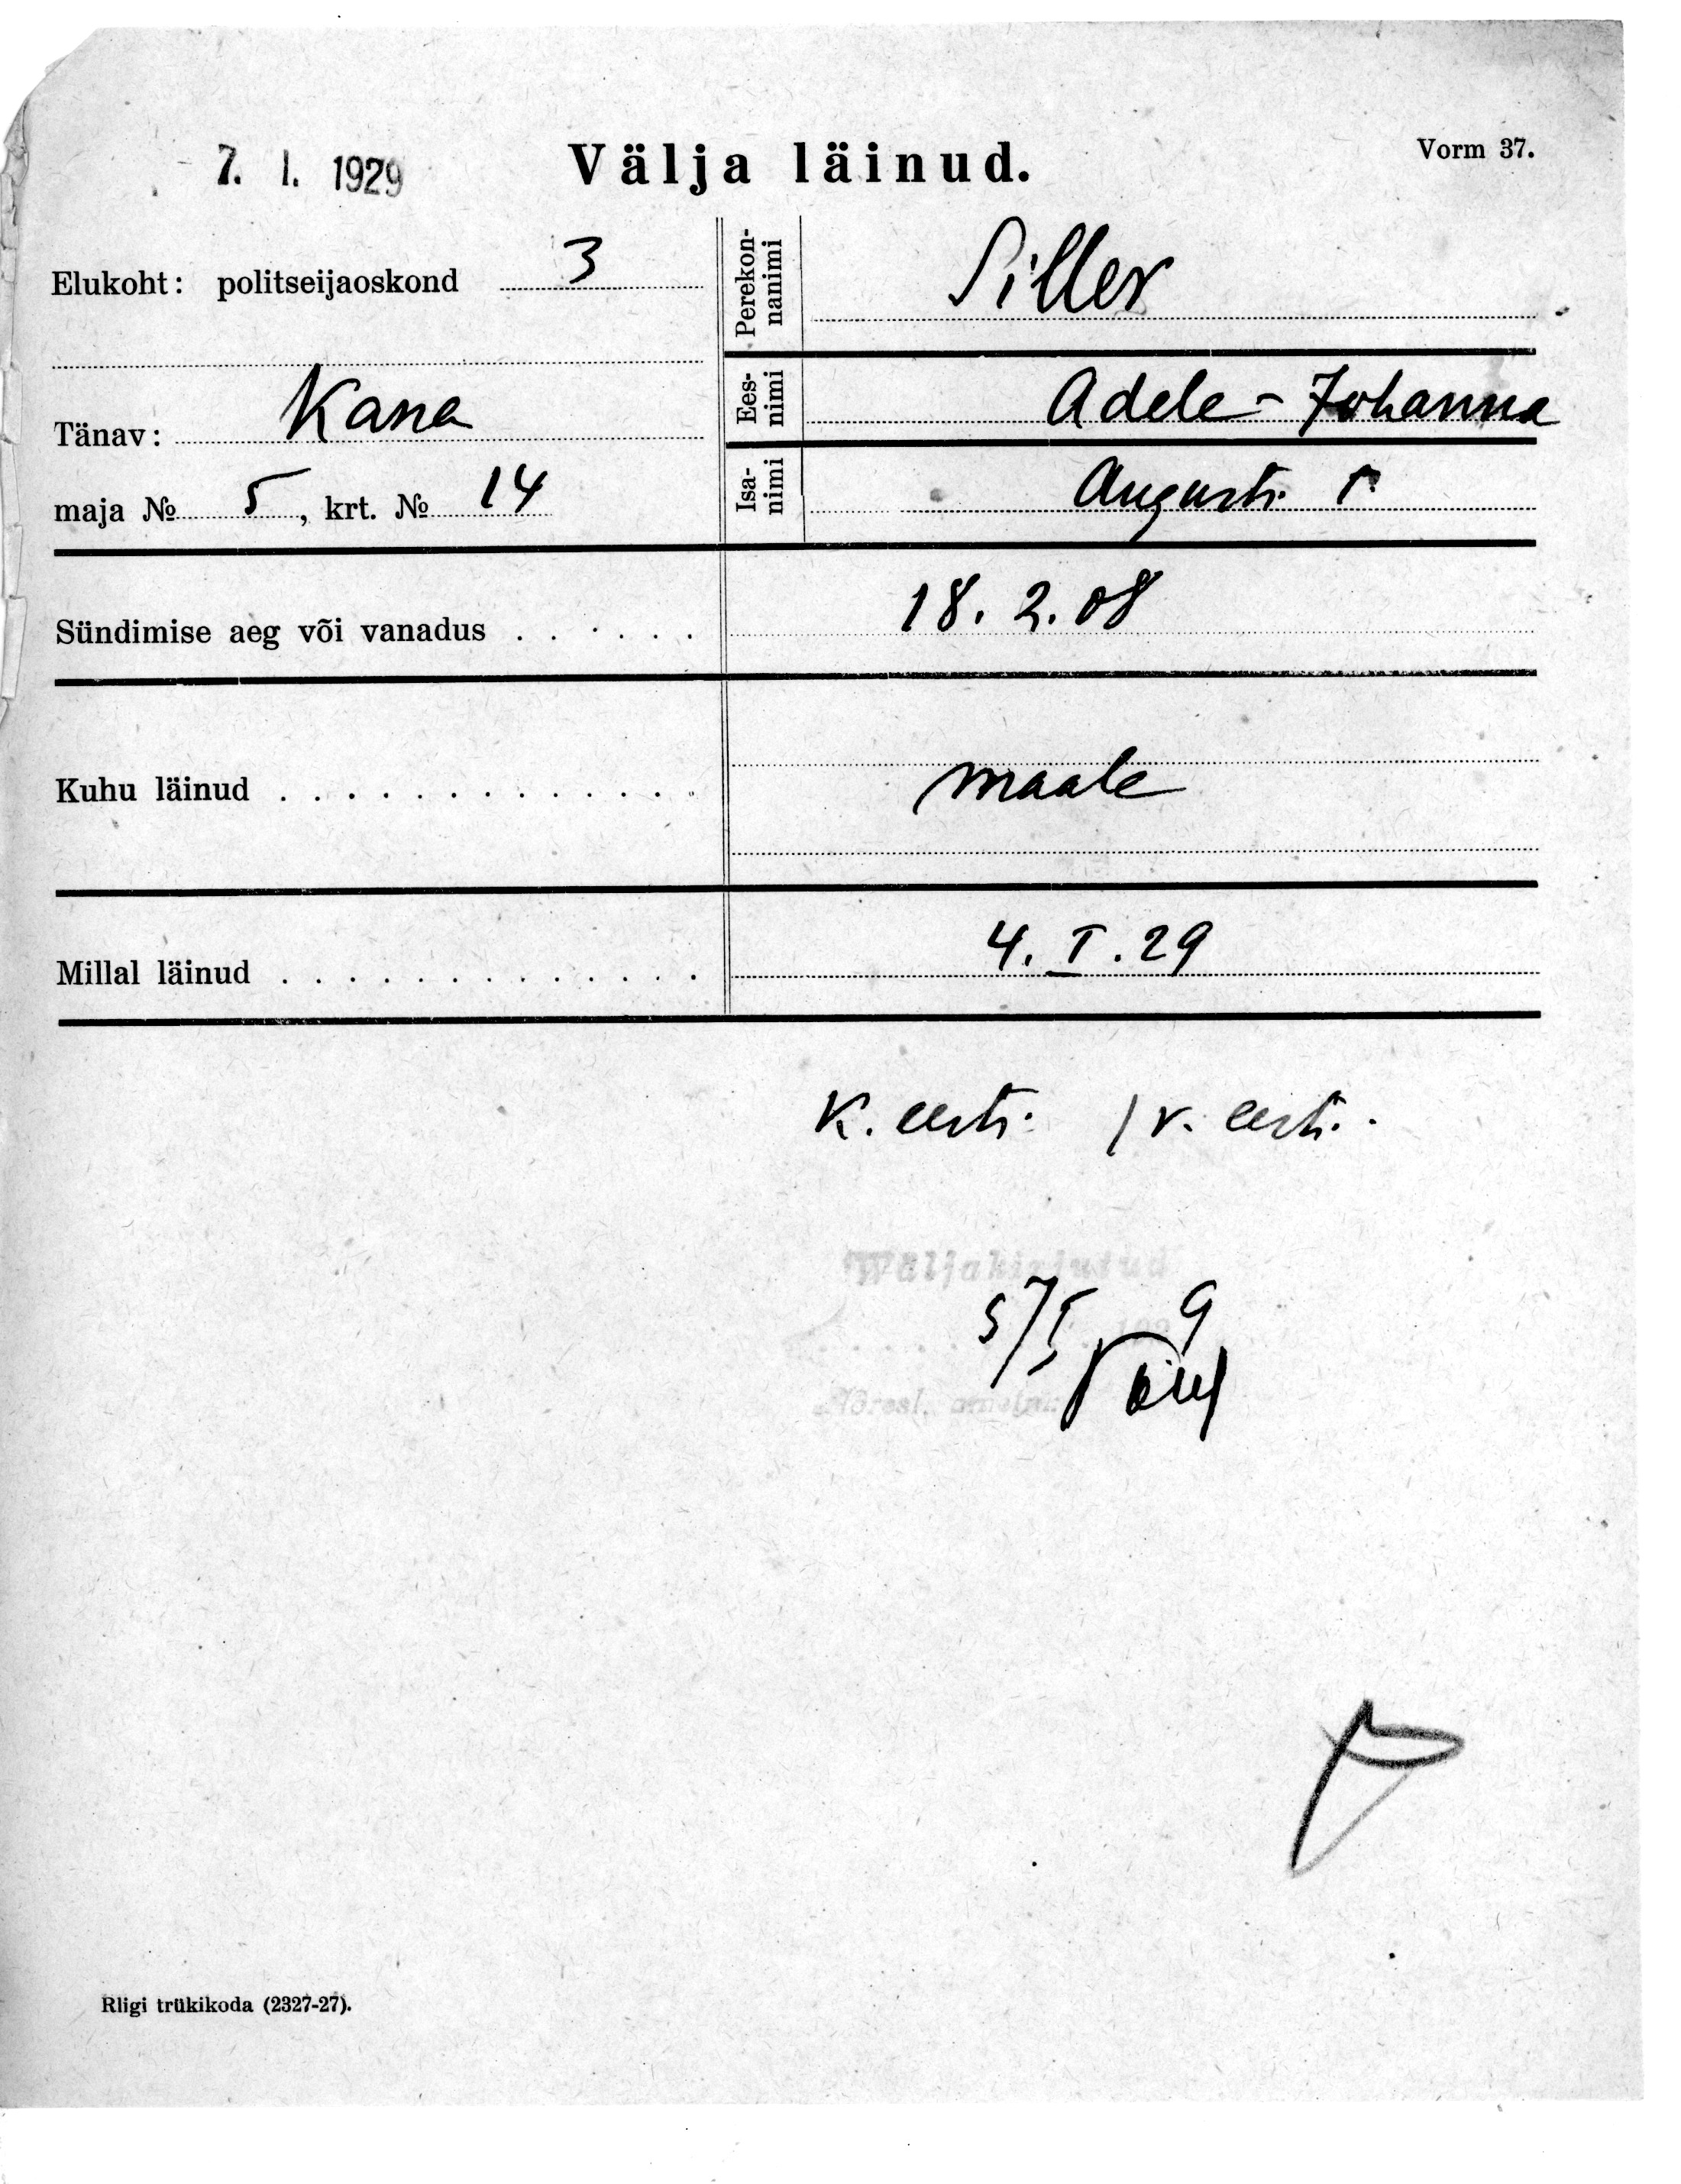 7. I. 1929 Välja läinud. Vorm 37.
Elukoht: politseijaoskond 3
Tänav: Kana
maja № 5, krt. № 14
Perekon-
nanimi Siller
Ees-
nimi Adele-Johanna
Isa-
nimi Augusti t.
Sündimise aeg või vanadus . . . . . . 18. 2. 08
Kuhu läinud . . . . . . . . . . . . . maale
Millal läinud . . . . . . . . . . . . . 4. I. 29
K. eesti / v. eesti.
Wäljakirjutud
5/I 9
Riigi trükikoda (2327-27).